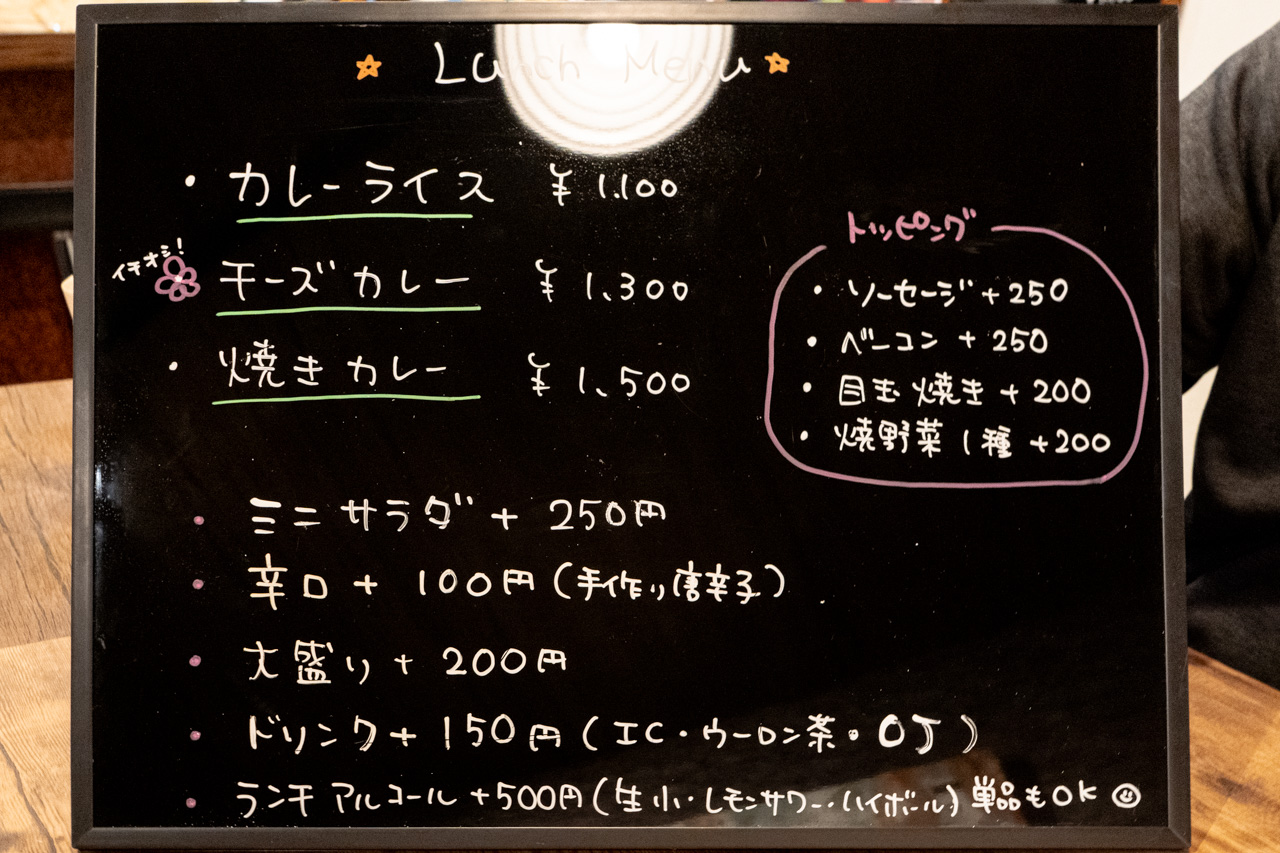 Lunch Menu
・カレーライス ¥1.100
イチオシ!
チーズカレー ¥1、300
・焼きカレー ¥1、500
トッピング
・ソーセージ+250
・ベーコン+250
・目玉焼き+200
・焼野菜1種+200
・ミニサラダ+250円
・辛口+100円(手作り唐辛子)
・大盛り+200円
・ドリンク+150円(IC・ウーロン茶・OJ)
・ランチアルコール+500円(生小・レモンサワー・ハイボール)単品もOK